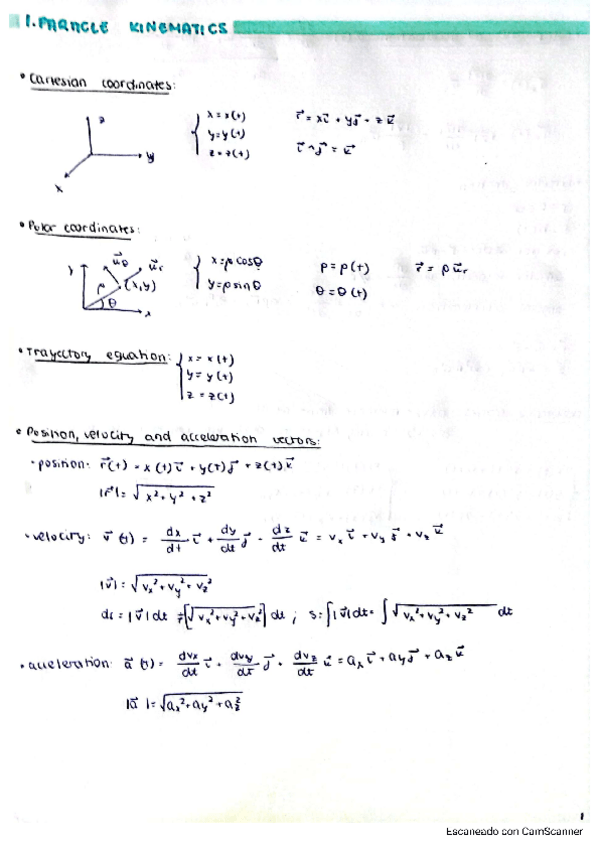 1. PARTICLE KINEMATICS
• Cartesian coordinates:
z
y
x
x = x(t)
y = y(t)
z = z(t)
r⃗ = xi⃗ + yj⃗ + zk⃗
i⃗ ^ j⃗ = k⃗
• Polar coordinates:
y
u⃗θ
u⃗r
ρ
(x,y)
θ
x
x = ρ cosθ
y = ρ sinθ
ρ = ρ(t)
θ = θ(t)
r⃗ = ρ u⃗r
• Trayectory equation:
x = x(t)
y = y(t)
z = z(t)
• Position, velocity and acceleration vectors:
· position: r⃗(t) = x(t)i⃗ + y(t)j⃗ + z(t)k⃗
|r⃗| = √(x² + y² + z²)
· velocity: v⃗(t) = dx/dt i⃗ + dy/dt j⃗ + dz/dt k⃗ = vx i⃗ + vy j⃗ + vz k⃗
|v⃗| = √(vx² + vy² + vz²)
ds = |v⃗|dt = [√(vx² + vy² + vz²)] dt ; s = ∫|v⃗|dt = ∫√(vx² + vy² + vz²) dt
· acceleration: a⃗(t) = dvx/dt i⃗ + dvy/dt j⃗ + dvz/dt k⃗ = ax i⃗ + ay j⃗ + az k⃗
|a⃗| = √(ax² + ay² + az²)
1
Escaneado con CamScanner